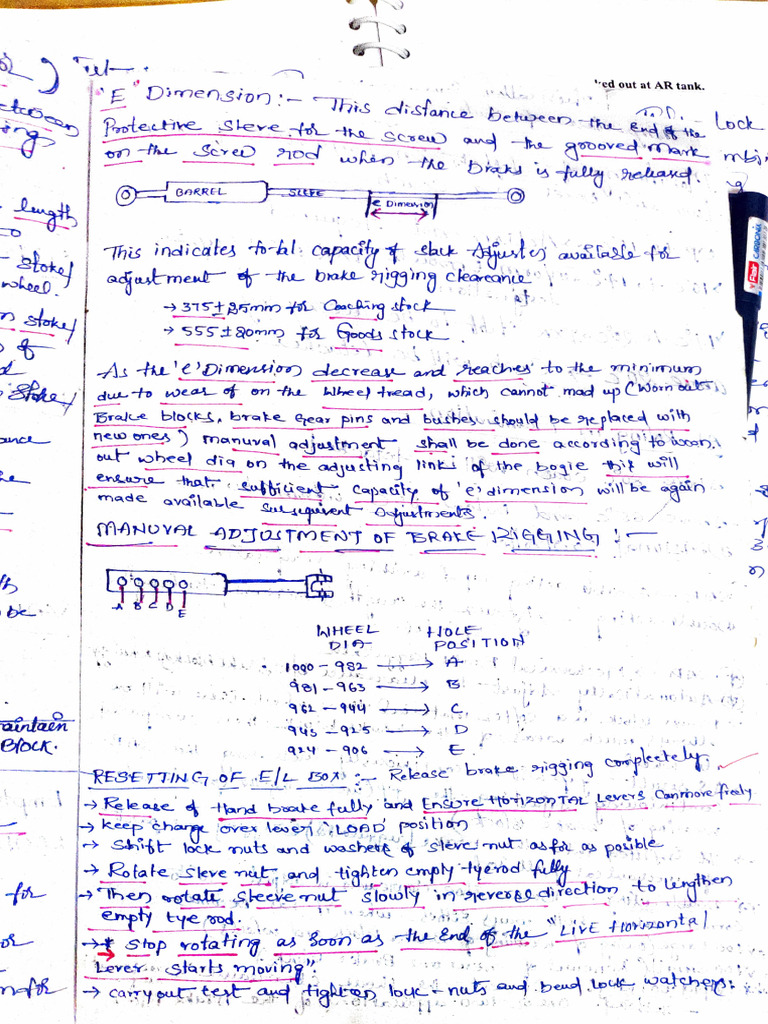 ked out at AR tank.
"E" Dimension:- This distance between the end of the
Protective sleve for the screw and the grooved mark
on the screw rod when the brake is fully released.
BARREL SLEEVE e Dimension
This indicates total capacity of slack Adjuster available for
adjustment of the brake rigging clearance
→ 375±25mm for Coaching stock
→ 555±20mm for Goods stock.
As the 'e' Dimension decrease and reaches to the minimum
due to wear of on the wheel tread, which cannot mad up (worn out
Brake blocks, brake Gear pins and bushes should be replaced with
new ones) manuval adjustment shall be done according to worn
out wheel dia on the adjusting links of the bogie this will
ensure that sufficient capacity of 'e' dimension will be again
made available subsequent Adjustments.
MANUVAL ADJUSTMENT OF BRAKE RIGGING :-
A B C D E
WHEEL HOLE
DIA POSITION
1000 - 982 → A
981 - 963 → B
962 - 944 → C
943 - 925 → D
924 - 906 → E
RESETTING OF E/L BOX :- Release brake rigging completely
→ Release of Hand brake fully and Ensure Horizontal Levers Can move freely
→ Keep change over lever 'LOAD' position
→ Shift lock nuts and washers of sleve nut as for as posible
→ Rotate sleve nut and tighten empty tyerod fully
→ Then rotate sleeve nut slowly in reverse direction to lengthen
empty tye rod.
→ * Stop rotating as soon as the End of the "Live Horizontal
Lever starts moving".
→ carry out test and tighten lock-nuts and bend lock watchers.
Lock
length
stoke/
wheel.
stoke/
of
Stoke/
be
maintain
BLOCK.
for